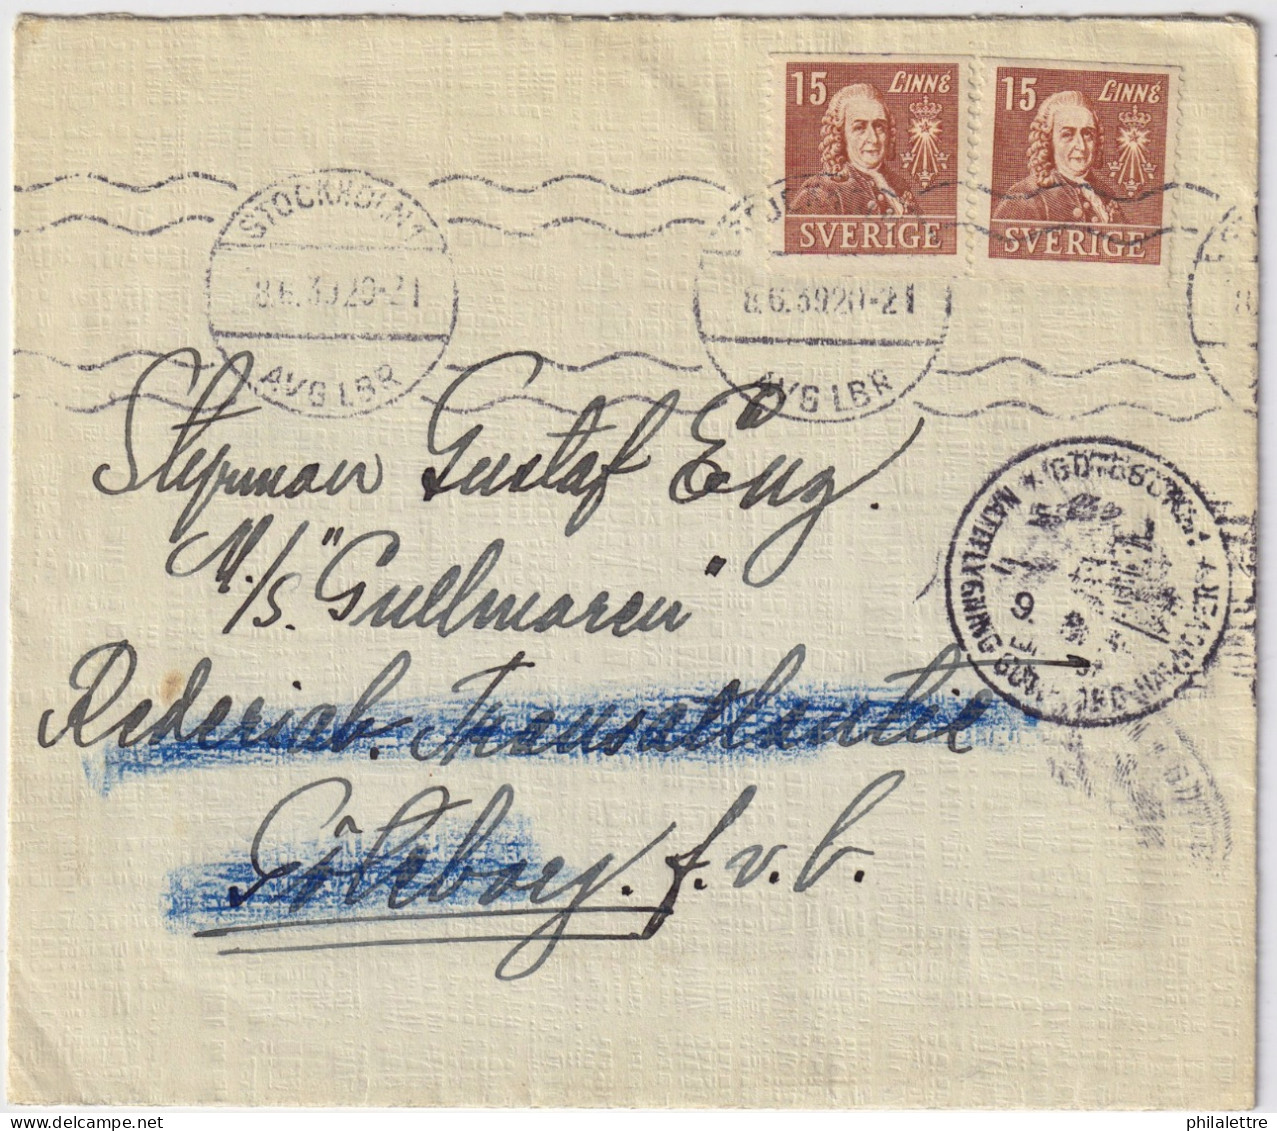 15 LINNÉ SVERIGE
15 LINNÉ SVERIGE
STOCKHOLM 1
8.6.39 20-21
AVG LBR
8.6.39 20-21
AVG LBR
Styrman Gustaf Eng.
M./s. "Gullmaren"
Rederiab. Transatlantic
Göteborg. f.v.b.
GÖTEBORG 1
NATTFLYGNING GÖTEBORG-HANNOVER
9
philalettre